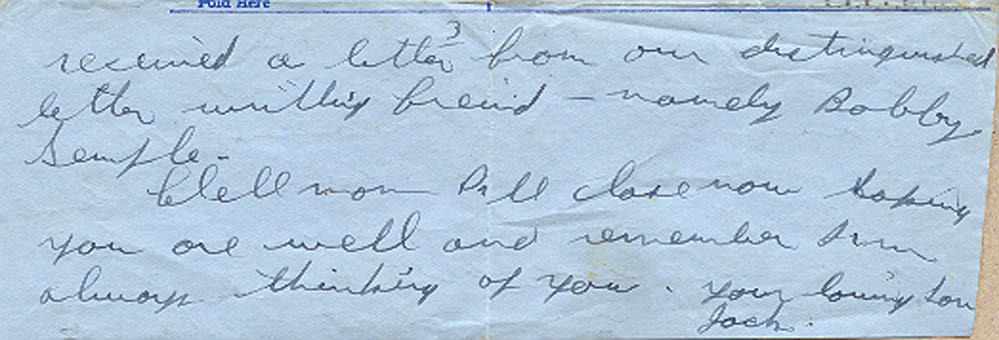 Fold Here
received a letter from our distinguished
letter writting freind - namely Bobby
Semple.
Well mom I'll close now hoping
you are well and remember I'm
always thinking of you. Your loving Son
Jack.